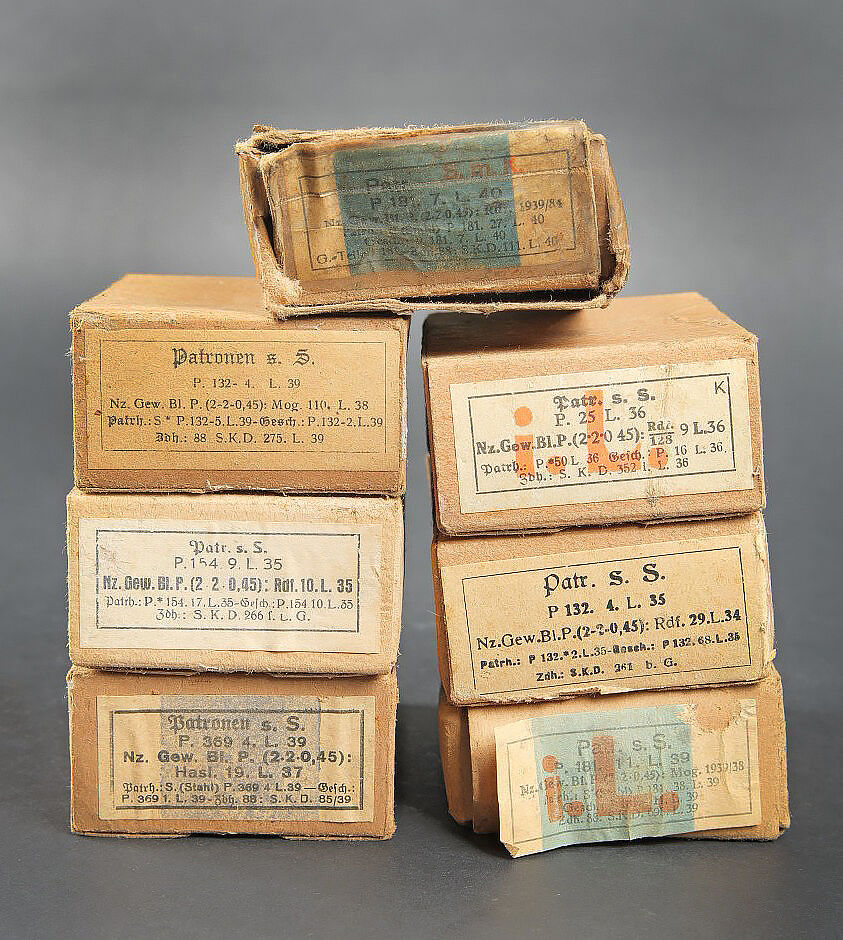 S. m. K.
P 181. 7. L. 40
1939/84
P 181. 27. L. 40
181. 7. L. 40
S.K.D. 111. L. 40
Patronen s. S.
P. 132- 4. L. 39
Nz. Gew. Bl. P. (2-2-0,45): Mog. 110. L. 38
Patrh.: S* P.132-5.L.39-Gesch.: P.132-2.L.39
Zdh.: 88 S.K.D. 275. L. 39
Patr. s. S.
P.154 9. L. 35
Nz.Gew.Bl.P.(2-2-0,45): Rdf.10.L. 35
Patrh.: P.*154.17.L.35-Gesch.: P.154 10.L.35
Zdh.: S.K.D. 266 f. L. G.
Patronen s. S.
P. 369 4. L. 39
Nz. Gew. Bl. P. (2-2-0,45):
Hasl. 19. L. 37
Patrh.: S.(Stahl) P.369 4 L.39—Gesch.:
P. 369 1. L. 39-Zdh. 88: S. K.D. 85/39
K
Patr. s. S.
i. L.
P. 25 L. 36
Nz.Gew.Bl.P.(2-2-0 45): Rdf. 128 9 L.36
Patrh.: P.*50 L. 36 Gesch.: P. 16 L. 36.
Zdh.: S. K. D. 352 i. L. 36
Patr. s. S.
P 132. 4. L. 35
Nz.Gew.Bl.P.(2-2-0,45): Rdf. 29.L.34
Patrh.: P 132.*2.L.35-Gesch.: P 132.68.L.35
Zdh.: S.K.D. 261 b. G.
Patr. s. S.
i. L.
11. L. 39
Mog. 1939/38
L. 39